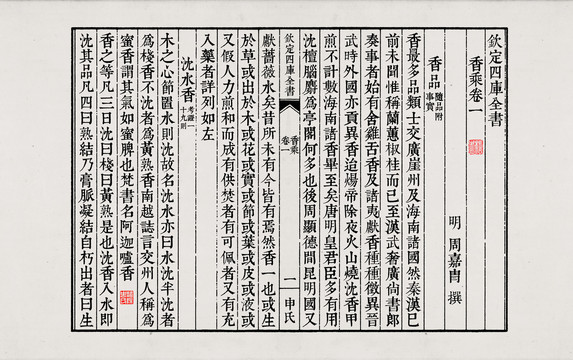 欽定四庫全書
香乘卷一
明 周嘉冑 撰
香品 隨品附事實
香最多品類士交廣崖州及海南諸國然秦漢已
前未聞惟稱蘭蕙椒桂而已至漢武奢廣尙書郞
奏事者始有含雞舌香及諸夷獻香種種徵異晉
武時外國亦貢異香迨煬帝除夜火山燒沈香甲
煎不計數海南諸香畢至矣唐明皇君臣多有用
沈檀腦麝爲亭閣何多也後周顯德間昆明國又
欽定四庫全書
香乘
卷一
二
申氏
獻薔薇水矣昔所未有今皆有焉然香一也或生
於草或出於木或花或實或節或葉或皮或液或
又假人力煎和而成有供焚者有可佩者又有充
入藥者詳列如左
沈水香 考證一十九則
木之心節置水則沈故名沈水亦曰水沈半沈者
爲棧香不沈者爲黃熟香南越誌言交州人稱爲
蜜香謂其氣如蜜脾也梵書名阿迦嚧香
香之等凡三曰沈曰棧曰黃熟是也沈香入水即
沈其品凡四曰熟結乃膏脈凝結自朽出者曰生